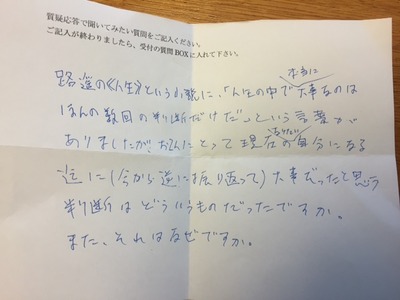 質疑応答で聞いてみたい質問をご記入ください。
ご記入が終わりましたら、受付の質問BOXに入れて下さい。
本当に
路遥の《人生》という小説に、「人生の中で大事なのは
ほんの数回の判断だけだ」という言葉が
ありましたが、さんにとって現在の自分になる
迄に(今から逆に振り返って)大事だったと思う
判断はどういうものだったですか。
また、それはなぜですか。